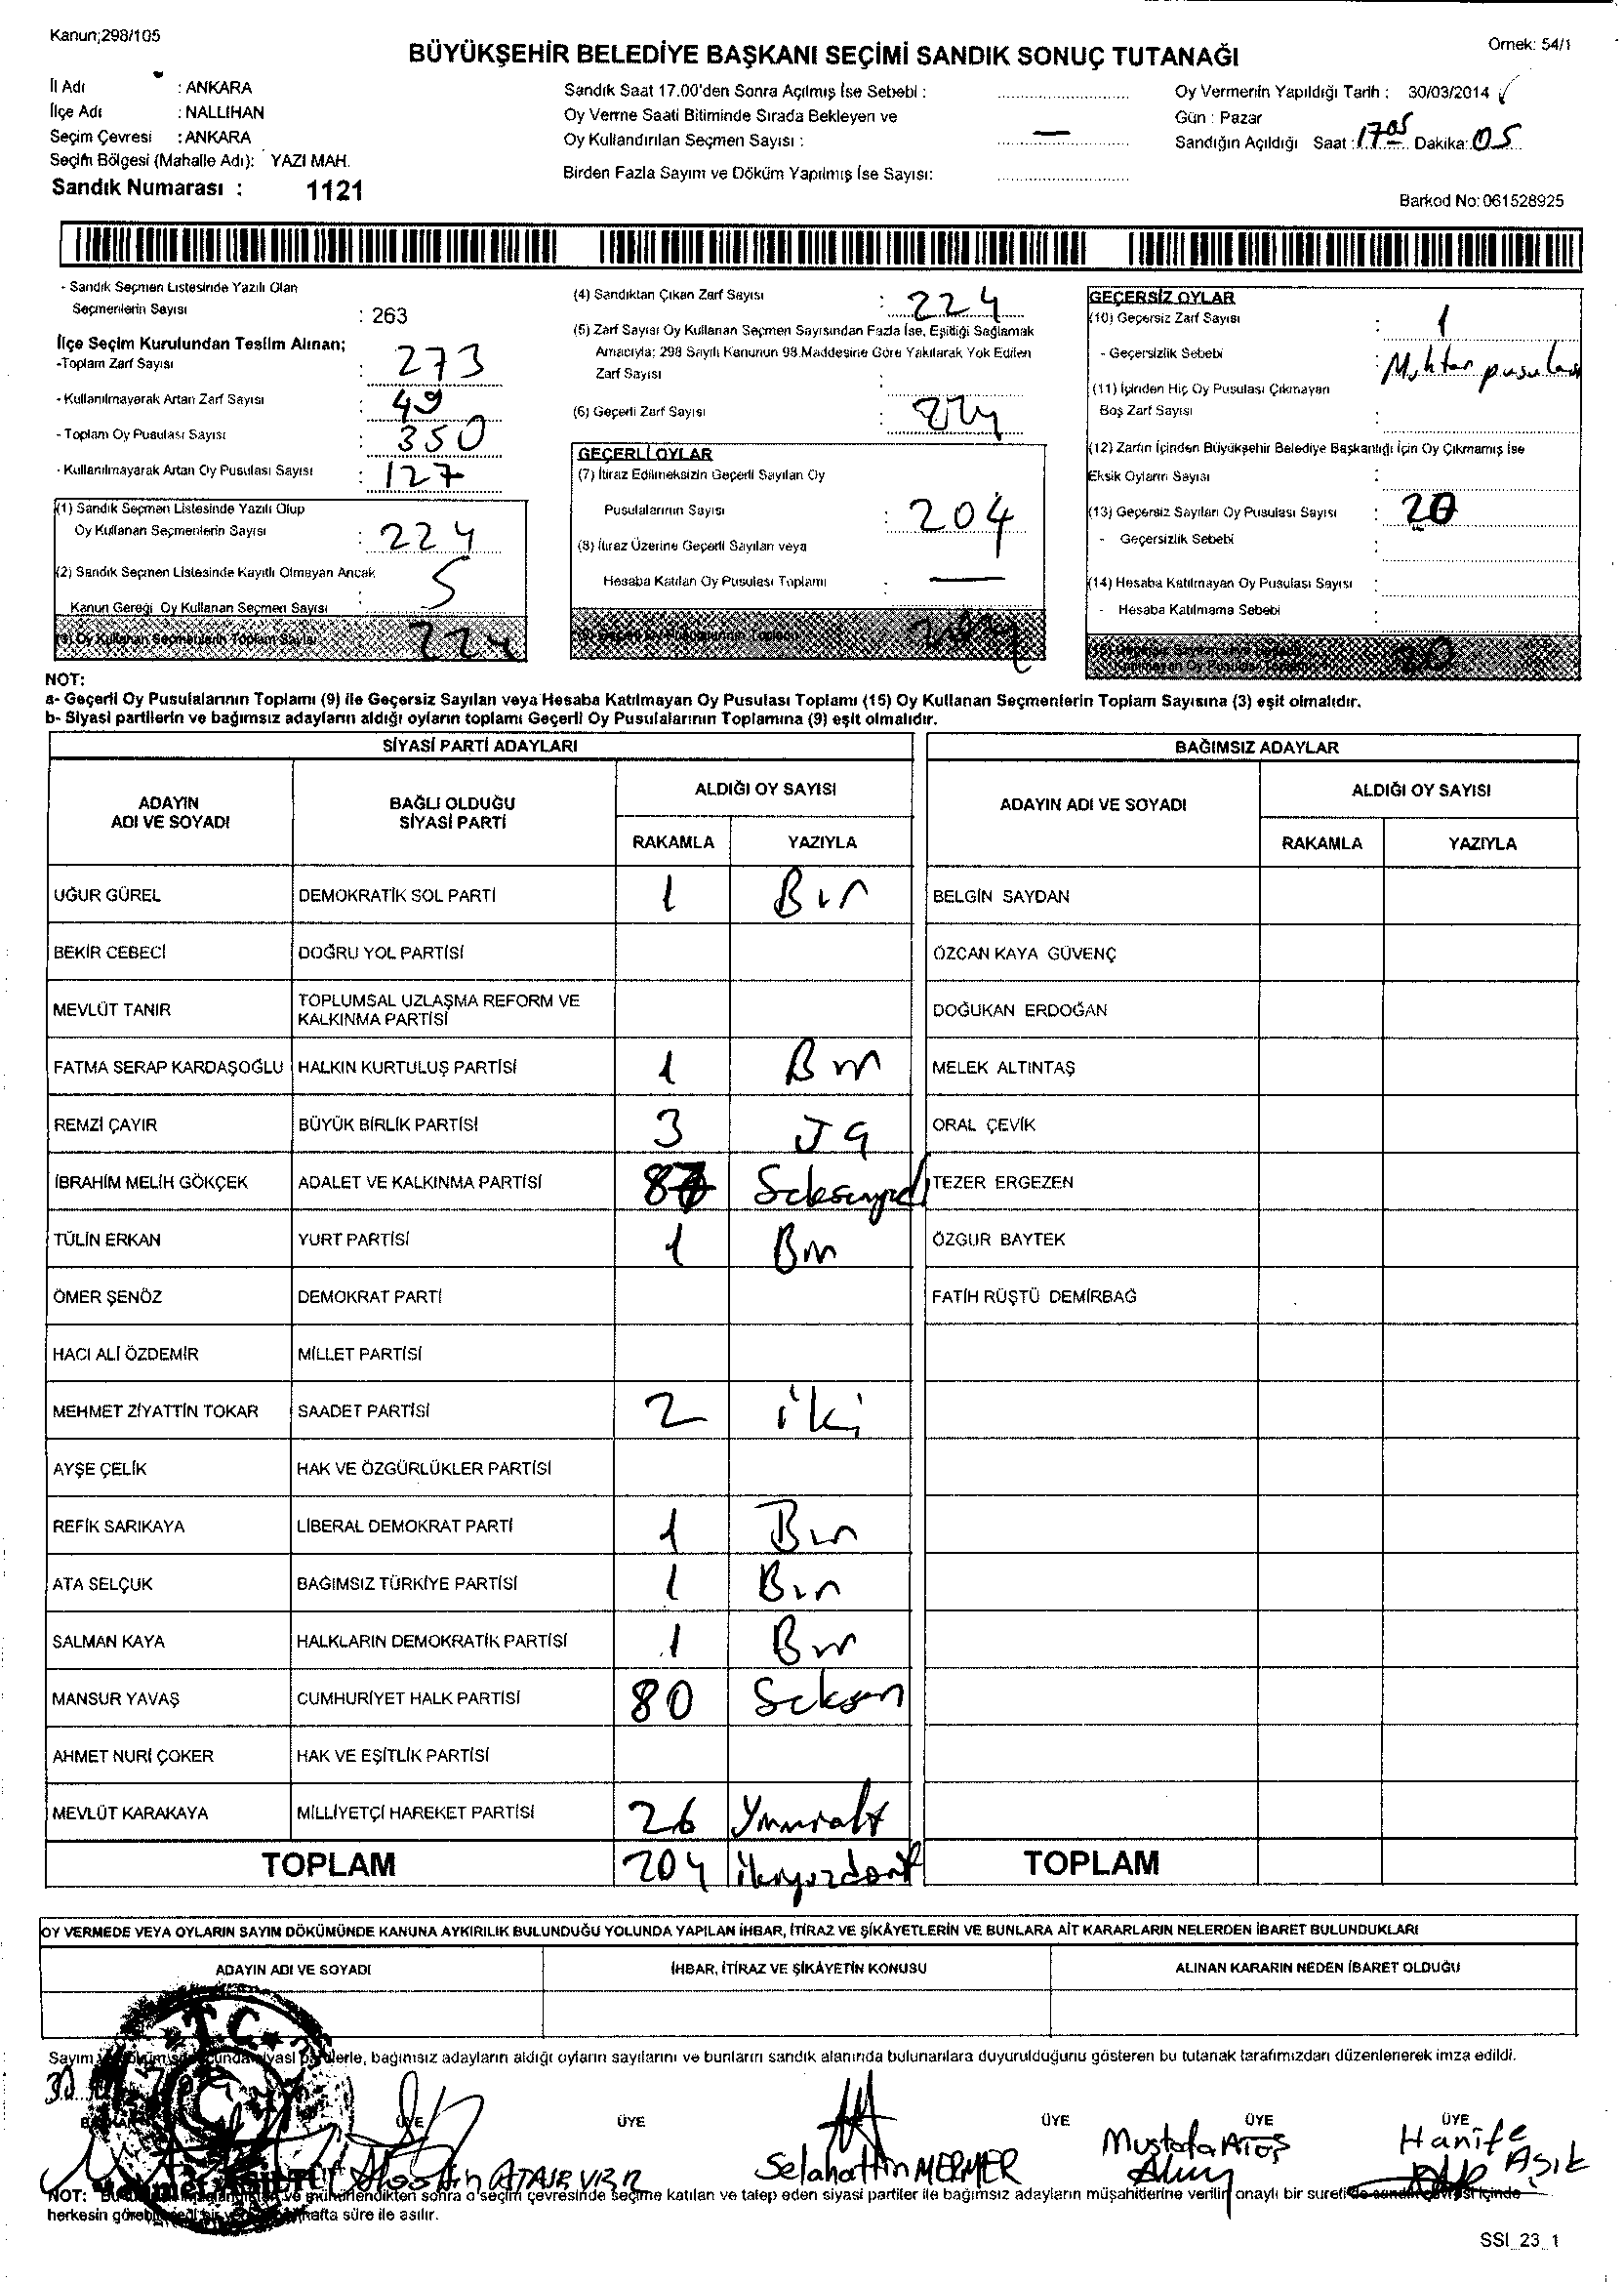 Kanun;298/105
Örnek: 54/1
BÜYÜKŞEHİR BELEDİYE BAŞKANI SEÇİMİ SANDIK SONUÇ TUTANAĞI
İl Adı : ANKARA
İlçe Adı : NALLIHAN
Seçim Çevresi : ANKARA
Seçim Bölgesi (Mahalle Adı): YAZI MAH.
Sandık Numarası : 1121
Sandık Saat 17.00'den Sonra Açılmış İse Sebebi :
Oy Verme Saati Bitiminde Sırada Bekleyen ve
Oy Kullandırılan Seçmen Sayısı : —
Birden Fazla Sayım ve Döküm Yapılmış İse Sayısı:
Oy Vermenin Yapıldığı Tarih : 30/03/2014
Gün : Pazar
Sandığın Açıldığı Saat : 17 05 Dakika: 05
Barkod No: 061528925
- Sandık Seçmen Listesinde Yazılı Olan
Seçmenlerin Sayısı : 263
İlçe Seçim Kurulundan Teslim Alınan;
-Toplam Zarf Sayısı : 273
- Kullanılmayarak Artan Zarf Sayısı : 49
- Toplam Oy Pusulası Sayısı : 350
- Kullanılmayarak Artan Oy Pusulası Sayısı : 127
(1) Sandık Seçmen Listesinde Yazılı Olup
Oy Kullanan Seçmenlerin Sayısı : 224
(2) Sandık Seçmen Listesinde Kayıtlı Olmayan Ancak
Kanun Gereği Oy Kullanan Seçmen Sayısı : 5
(3) Oy Kullanan Seçmenlerin Toplam Sayısı 224
(4) Sandıktan Çıkan Zarf Sayısı : 224
(5) Zarf Sayısı Oy Kullanan Seçmen Sayısından Fazla İse, Eşitliği Sağlamak
Amacıyla; 298 Sayılı Kanunun 98.Maddesine Göre Yakılarak Yok Edilen
Zarf Sayısı :
(6) Geçerli Zarf Sayısı : 224
GEÇERLİ OYLAR
(7) İtiraz Edilmeksizin Geçerli Sayılan Oy
Pusulalarının Sayısı : 204
(8) İtiraz Üzerine Geçerli Sayılan veya
Hesaba Katılan Oy Pusulası Toplamı : —
(9) Geçerli Oy Pusulalarının Toplamı
GEÇERSİZ OYLAR
(10) Geçersiz Zarf Sayısı : 1
- Geçersizlik Sebebi : Muhtar pusulası
(11) İçinden Hiç Oy Pusulası Çıkmayan
Boş Zarf Sayısı :
(12) Zarfın İçinden Büyükşehir Belediye Başkanlığı İçin Oy Çıkmamış İse
Eksik Oyların Sayısı :
(13) Geçersiz Sayılan Oy Pusulası Sayısı : 20
- Geçersizlik Sebebi :
(14) Hesaba Katılmayan Oy Pusulası Sayısı :
- Hesaba Katılmama Sebebi :
20
NOT:
a- Geçerli Oy Pusulalarının Toplamı (9) ile Geçersiz Sayılan veya Hesaba Katılmayan Oy Pusulası Toplamı (15) Oy Kullanan Seçmenlerin Toplam Sayısına (3) eşit olmalıdır.
b- Siyasi partilerin ve bağımsız adayların aldığı oyların toplamı Geçerli Oy Pusulalarının Toplamına (9) eşit olmalıdır.
SİYASİ PARTİ ADAYLARI
ADAYIN ADI VE SOYADI
BAĞLI OLDUĞU SİYASİ PARTİ
ALDIĞI OY SAYISI
RAKAMLA YAZIYLA
UĞUR GÜREL DEMOKRATİK SOL PARTİ 1 Bir
BEKİR CEBECİ DOĞRU YOL PARTİSİ
MEVLÜT TANIR TOPLUMSAL UZLAŞMA REFORM VE KALKINMA PARTİSİ
FATMA SERAP KARDAŞOĞLU HALKIN KURTULUŞ PARTİSİ 1 Bir
REMZİ ÇAYIR BÜYÜK BİRLİK PARTİSİ 3
İBRAHİM MELİH GÖKÇEK ADALET VE KALKINMA PARTİSİ 87 Seksenyedi
TÜLİN ERKAN YURT PARTİSİ 1 Bir
ÖMER ŞENÖZ DEMOKRAT PARTİ
HACI ALİ ÖZDEMİR MİLLET PARTİSİ
MEHMET ZİYATTİN TOKAR SAADET PARTİSİ 2 iki
AYŞE ÇELİK HAK VE ÖZGÜRLÜKLER PARTİSİ
REFİK SARIKAYA LİBERAL DEMOKRAT PARTİ 1 Bir
ATA SELÇUK BAĞIMSIZ TÜRKİYE PARTİSİ 1 Bir
SALMAN KAYA HALKLARIN DEMOKRATİK PARTİSİ 1 Bir
MANSUR YAVAŞ CUMHURİYET HALK PARTİSİ 80 Seksen
AHMET NURİ ÇOKER HAK VE EŞİTLİK PARTİSİ
MEVLÜT KARAKAYA MİLLİYETÇİ HAREKET PARTİSİ 26 Yirmialtı
TOPLAM 204 ikiyüzdört
BAĞIMSIZ ADAYLAR
ADAYIN ADI VE SOYADI
ALDIĞI OY SAYISI
RAKAMLA YAZIYLA
BELGİN SAYDAN
ÖZCAN KAYA GÜVENÇ
DOĞUKAN ERDOĞAN
MELEK ALTINTAŞ
ORAL ÇEVİK
TEZER ERGEZEN
ÖZGÜR BAYTEK
FATİH RÜŞTÜ DEMİRBAĞ
TOPLAM
OY VERMEDE VEYA OYLARIN SAYIM DÖKÜMÜNDE KANUNA AYKIRILIK BULUNDUĞU YOLUNDA YAPILAN İHBAR, İTİRAZ VE ŞİKÂYETLERİN VE BUNLARA AİT KARARLARIN NELERDEN İBARET BULUNDUKLARI
ADAYIN ADI VE SOYADI
İHBAR, İTİRAZ VE ŞİKÂYETİN KONUSU
ALINAN KARARIN NEDEN İBARET OLDUĞU
T.C.
Sayım bağımsız adayların aldığı oyların sayılarını ve bunların sandık alanında bulunanlara duyurulduğunu gösteren bu tutanak tarafımızdan düzenlenerek imza edildi.
30
ÜYE ÜYE ÜYE ÜYE ÜYE
Selahattin MERMER
Mustafa ATEŞ
Hanife AŞIK
NOT: mühürlendikten sonra o seçim çevresinde seçime katılan ve talep eden siyasi partiler ile bağımsız adayların müşahitlerine verilir onaylı bir sureti
herkesin hafta süre ile asılır.
SSI_23_1